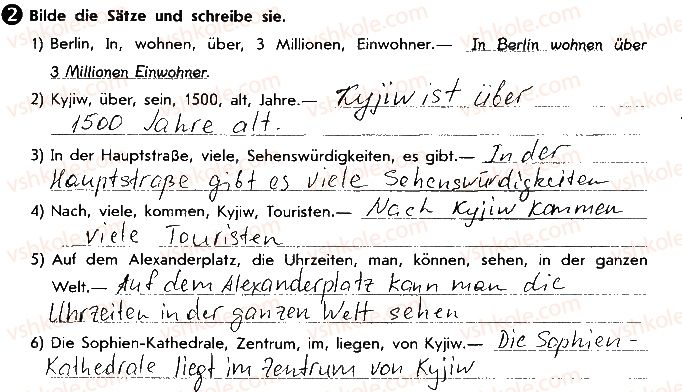 2 Bilde die Sätze und schreibe sie.
1) Berlin, In, wohnen, über, 3 Millionen, Einwohner.— In Berlin wohnen über
3 Millionen Einwohner.
2) Kyjiw, über, sein, 1500, alt, Jahre.— Kyjiw ist über
1500 Jahre alt.
3) In der Hauptstraße, viele, Sehenswürdigkeiten, es gibt.— In der
Hauptstraße gibt es viele Sehenswürdigkeiten
4) Nach, viele, kommen, Kyjiw, Touristen.— Nach Kyjiw kommen
viele Touristen
5) Auf dem Alexanderplatz, die Uhrzeiten, man, können, sehen, in der ganzen
Welt.— Auf dem Alexanderplatz kann man die
Uhrzeiten in der ganzen Welt sehen
6) Die Sophien-Kathedrale, Zentrum, im, liegen, von Kyjiw.— Die Sophien-
Kathedrale liegt im Zentrum von Kyjiw